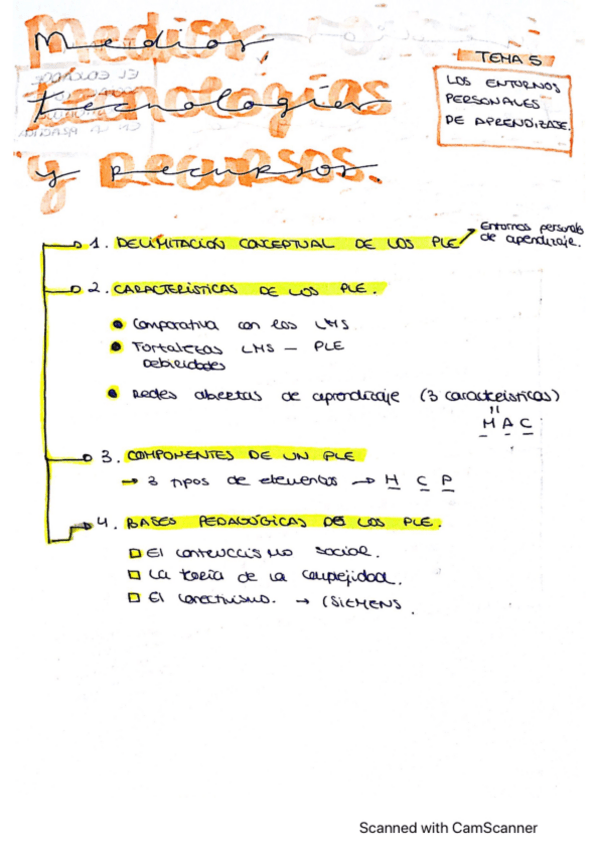 Medios,
tecnologías
y recursos.
TEMA 5
LOS ENTORNOS
PERSONALES
DE APRENDIZAJE.
1. DELIMITACIÓN CONCEPTUAL DE LOS PLE
Entornos personales
de aprendizaje.
2. CARACTERÍSTICAS DE LOS PLE.
Comparativa con los LMS
Fortalezas LMS — PLE
Debilidades
Redes abiertas de aprendizaje (3 características)
"
M A C
3. COMPONENTES DE UN PLE
→ 3 tipos de elementos → H C P
4. BASES PEDAGÓGICAS DE LOS PLE.
El constructivismo social.
La teoría de la complejidad.
El conectivismo. → (SIEMENS
Scanned with CamScanner